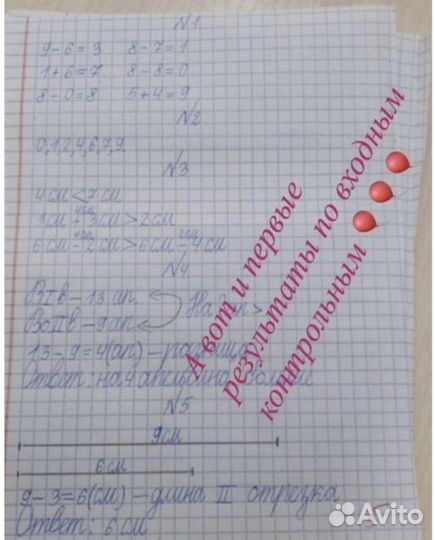 N1.
9-6=3 8-7=1
1+6=7 8-8=0
8-0=8 5+4=9
N2
0,1,2,4,6,7,9.
N3
4 см < 7 см
1 см 3 см > 2 см
6 см - 2 см > 6 см - 4 см
N4
В I в - 13 ап.
Во II в - 9 ап.
13-9=4(ап) -
Ответ: на 4 апельсина больше
N5
9 см
6 см
9-3=6(см) - длина II отрезка
Ответ: 6 см
А вот и первые
результаты по входным
контрольным
Avito